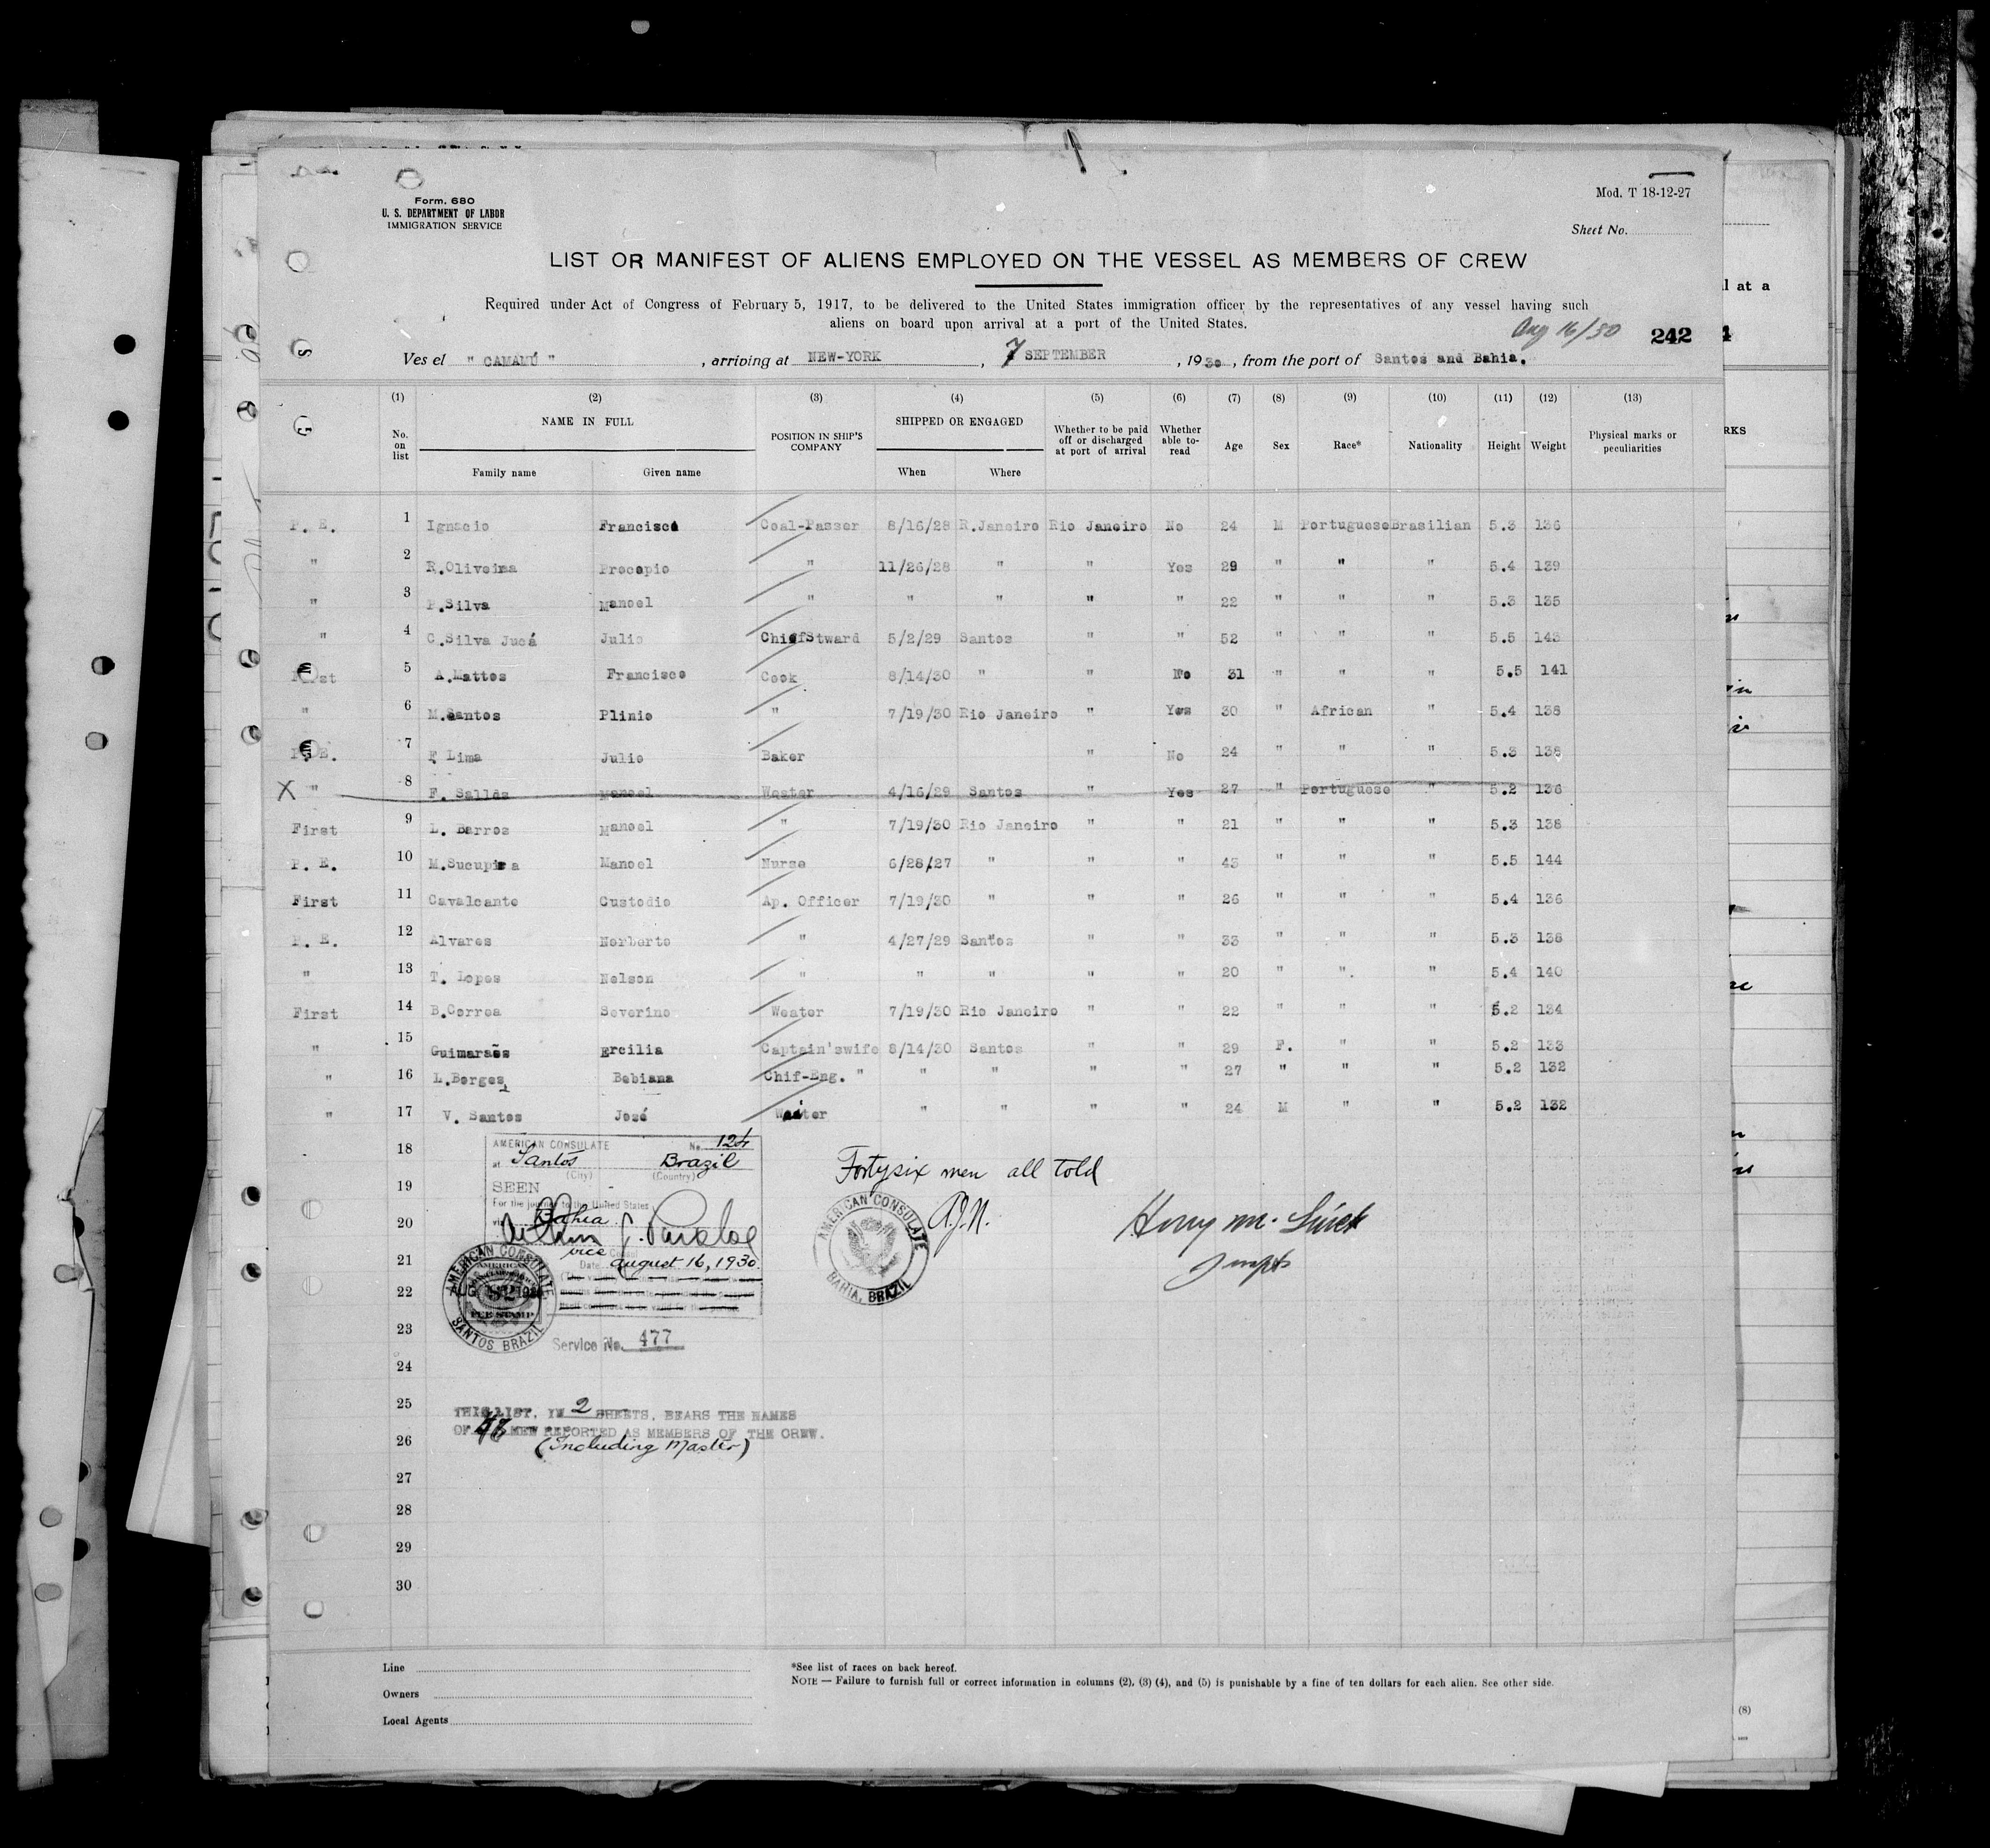 Form. 680
U. S. DEPARTMENT OF LABOR
IMMIGRATION SERVICE
Mod. T 18-12-27
Sheet No.
LIST OR MANIFEST OF ALIENS EMPLOYED ON THE VESSEL AS MEMBERS OF CREW
Required under Act of Congress of February 5, 1917, to be delivered to the United States immigration officer by the representatives of any vessel having such
aliens on board upon arrival at a port of the United States.
Aug 16/30
242
Ves el " CAMAMÚ " , arriving at NEW-YORK , 7 SEPTEMBER , 1930 , from the port of Santos and Bahia.
(1) (2) (3) (4) (5) (6) (7) (8) (9) (10) (11) (12) (13)
No. on list NAME IN FULL Family name Given name POSITION IN SHIP'S COMPANY SHIPPED OR ENGAGED When Where Whether to be paid off or discharged at port of arrival Whether able to- read Age Sex Race* Nationality Height Weight Physical marks or peculiarities
P. E. 1 Ignacio Francisco Coal-Passer 8/16/28 R.Janeiro Rio Janeiro No 24 M Portuguese Brasilian 5.3 136
" 2 R.Oliveira Procopio " 11/26/28 " " Yes 29 " " " 5.4 139
" 3 P.Silva Manoel " " " " " 22 " " " 5.3 135
" 4 C.Silva Jucá Julio Chief Stward 5/2/29 Santos " " 52 " " " 5.5 143
First 5 A.Mattos Francisco Cook 8/14/30 " " No 31 " " " 5.5 141
" 6 M.Santos Plinio " 7/19/30 Rio Janeiro " Yes 30 " African " 5.4 138
P. E. 7 F Lima Julio Baker " No 24 " " " 5.3 138
X " 8 F. Salles Manoel Weater 4/16/29 Santos " Yes 27 " Portuguese " 5.2 136
First 9 L. Barros Manoel " 7/19/30 Rio Janeiro " " 21 " " " 5.3 138
P. E. 10 M.Sucupira Manoel Nurse 6/28/27 " " " 43 " " " 5.5 144
First 11 Cavalcante Custodio Ap. Officer 7/19/30 " " " 26 " " " 5.4 136
P. E. 12 Alvares Norberto " 4/27/29 Santos " " 33 " " " 5.3 138
" 13 T. Lopes Nelson " " " " " 20 " " " 5.4 140
First 14 B.Correa Severino Weater 7/19/30 Rio Janeiro " " 22 " " " 5.2 134
" 15 Guimarães Ercilia Captain'swife 8/14/30 Santos " " 29 F. " " 5.2 133
" 16 L.Borges Bebiana Chif-Eng. " " " " " 27 " " " 5.2 132
" 17 V. Santos José Waiter " " " " 24 M " " 5.2 132
18
19
20
21
22
23
24
25
26
27
28
29
30
AMERICAN CONSULATE No. 124
at Santos Brazil
(City) (Country)
SEEN
For the journey to the United States
via Bahia
vice Consul
Date august 16, 1930.
AMERICAN CONSULATE
SANTOS BRAZIL
FEE STAMP
Service No. 477
Fortysix men all told
A.J.N.
AMERICAN CONSULATE
BAHIA, BRAZIL
Insptr
THIS LIST, IN 2 SHEETS, BEARS THE NAMES
OF 46 MEN REPORTED AS MEMBERS OF THE CREW.
(Including Master)
Line
Owners
Local Agents
*See list of races on back hereof.
NOTE — Failure to furnish full or correct information in columns (2), (3) (4), and (5) is punishable by a fine of ten dollars for each alien. See other side.
l at a
RKS
(8)